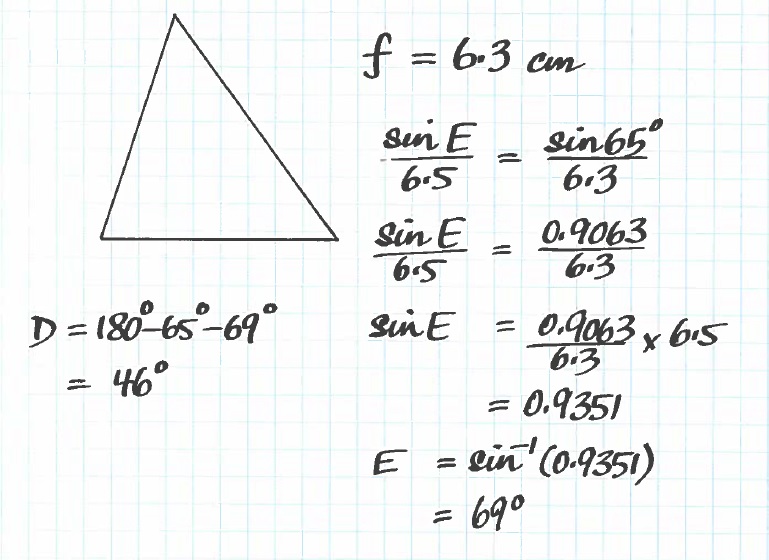 f = 6.3 cm
sin E / 6.5 = sin 65° / 6.3
sin E / 6.5 = 0.9063 / 6.3
sin E = 0.9063 / 6.3 × 6.5
= 0.9351
E = sin⁻¹(0.9351)
= 69°
D = 180°-65°-69°
= 46°